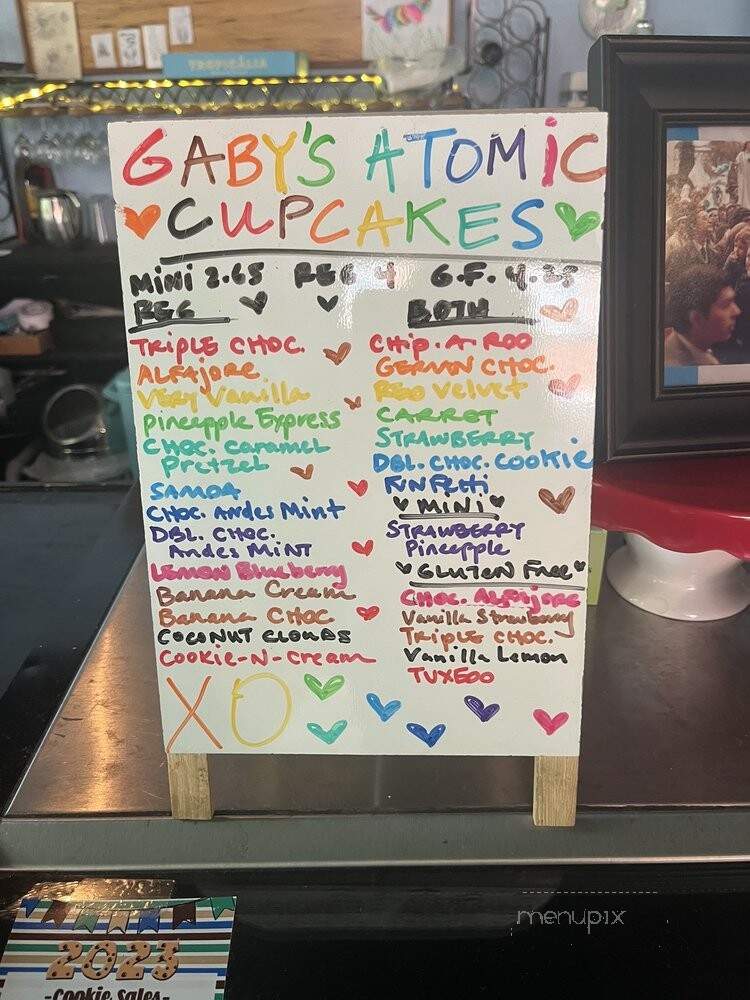 TROPICALIA
GABY'S ATOMIC
CUPCAKES
MINI 2.65 REG 4 G.F. 4.25
REG
TRIPLE CHOC.
ALFAJORE
VERY VANILLA
PINEAPPLE EXPRESS
CHOC. CARAMEL
PRETZEL
SAMOA
CHOC. ANDES MINT
DBL. CHOC.
ANDES MINT
LEMON BLUEBERRY
BANANA CREAM
BANANA CHOC
COCONUT CLOUDS
COOKIE-N-CREAM
BOTH
CHIP.A.ROO
GERMAN CHOC.
RED VELVET
CARROT
STRAWBERRY
DBL. CHOC. COOKIE
FUNFETTI
MINI
STRAWBERRY
PINEAPPLE
GLUTEN FREE
CHOC. ALFAJORE
VANILLA STRAWBERRY
TRIPLE CHOC.
VANILLA LEMON
TUXEDO
XO
2023
-COOKIE SALES-
menupix